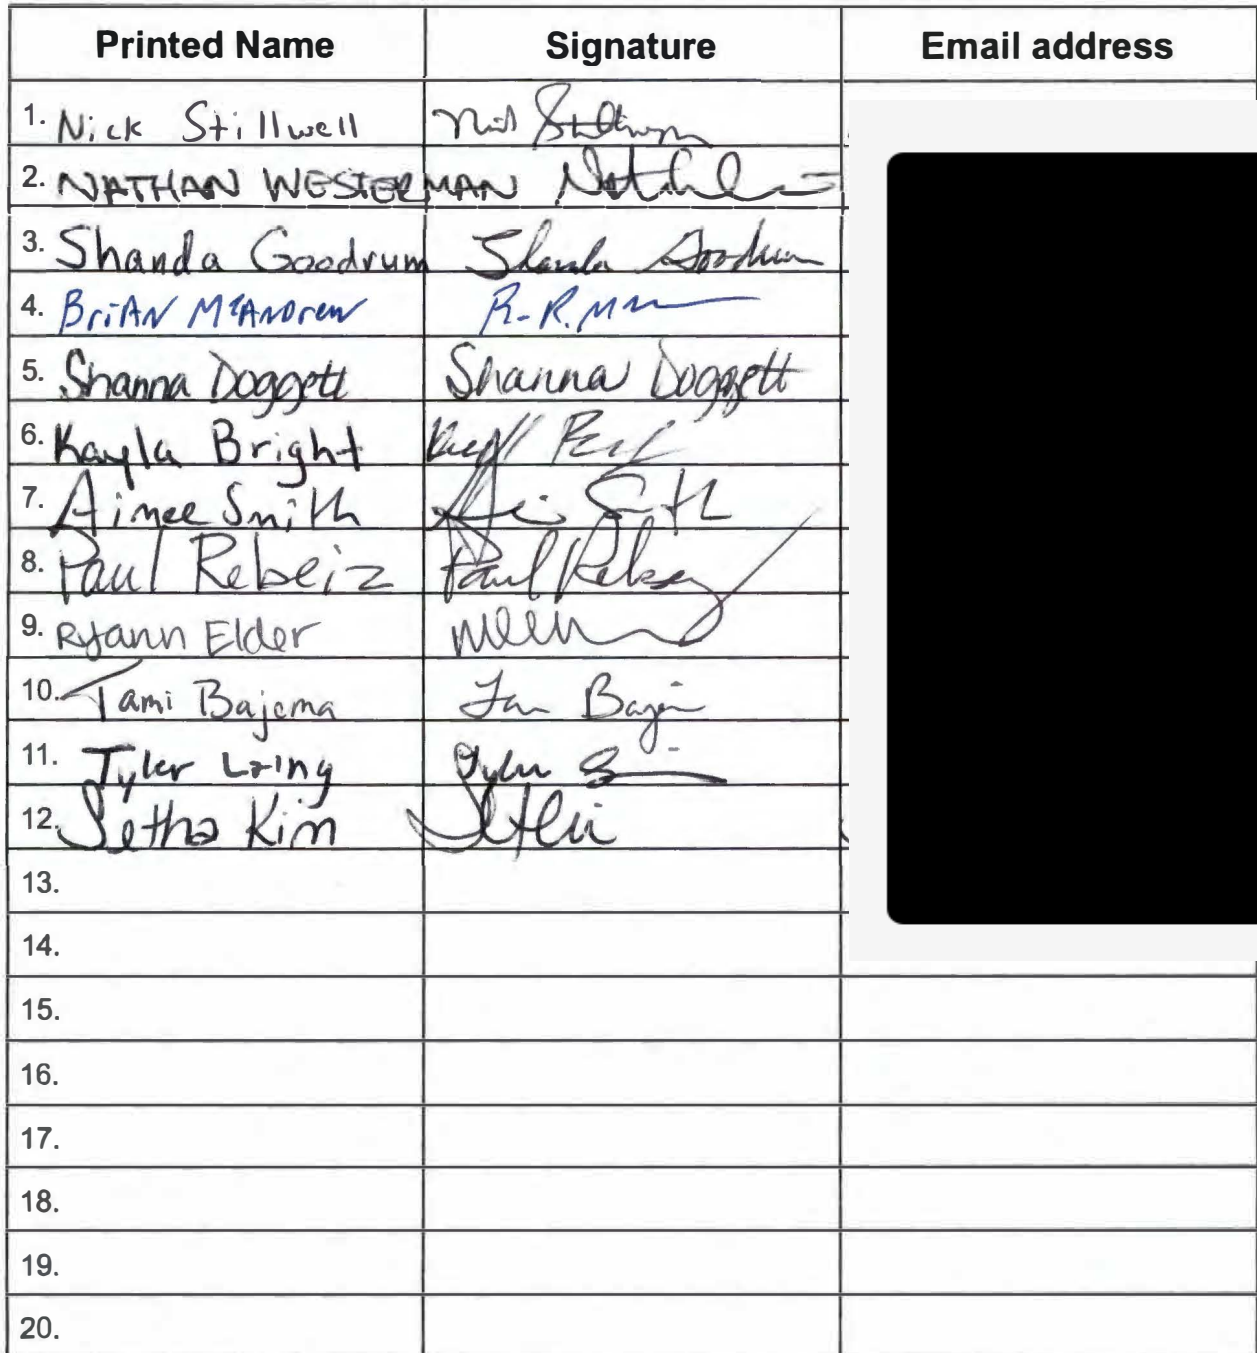 Printed Name Signature Email address
1. Nick Stillwell
2. NATHAN WESTERMAN
3. Shanda Goodrum Shanda Goodrum
4. BriAN McANDrew
5. Shanna Doggett Shanna Doggett
6. Kayla Bright
7. Aimee Smith
8. Paul Rebeiz Paul
9. Ryann Elder
10. Tami Bajema
11. Tyler Laing Tyler
12. Setha Kim
13.
14.
15.
16.
17.
18.
19.
20.